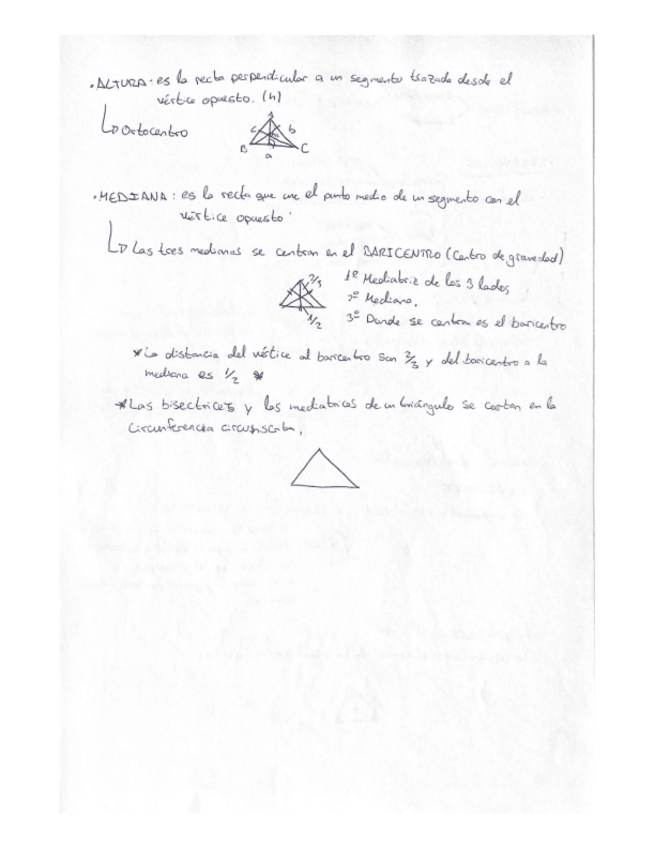 • ALTURA: es la recta perpendicular a un segmento trazada desde el
vértice opuesto. (h)
Ortocentro
A
c b
B C
a
• MEDIANA: es la recta que une el punto medio de un segmento con el
vértice opuesto
Las tres medianas se centran en el BARICENTRO (Centro de gravedad)
2/3
1/2
1º Mediatriz de los 3 lados
2º Mediana.
3º Donde se centran es el baricentro
* La distancia del vértice al baricentro son 2/3 y del baricentro a la
mediana es 1/2 *
* Las bisectrices y las mediatrices de un triángulo se cortan en la
Circunferencia circunscrita.